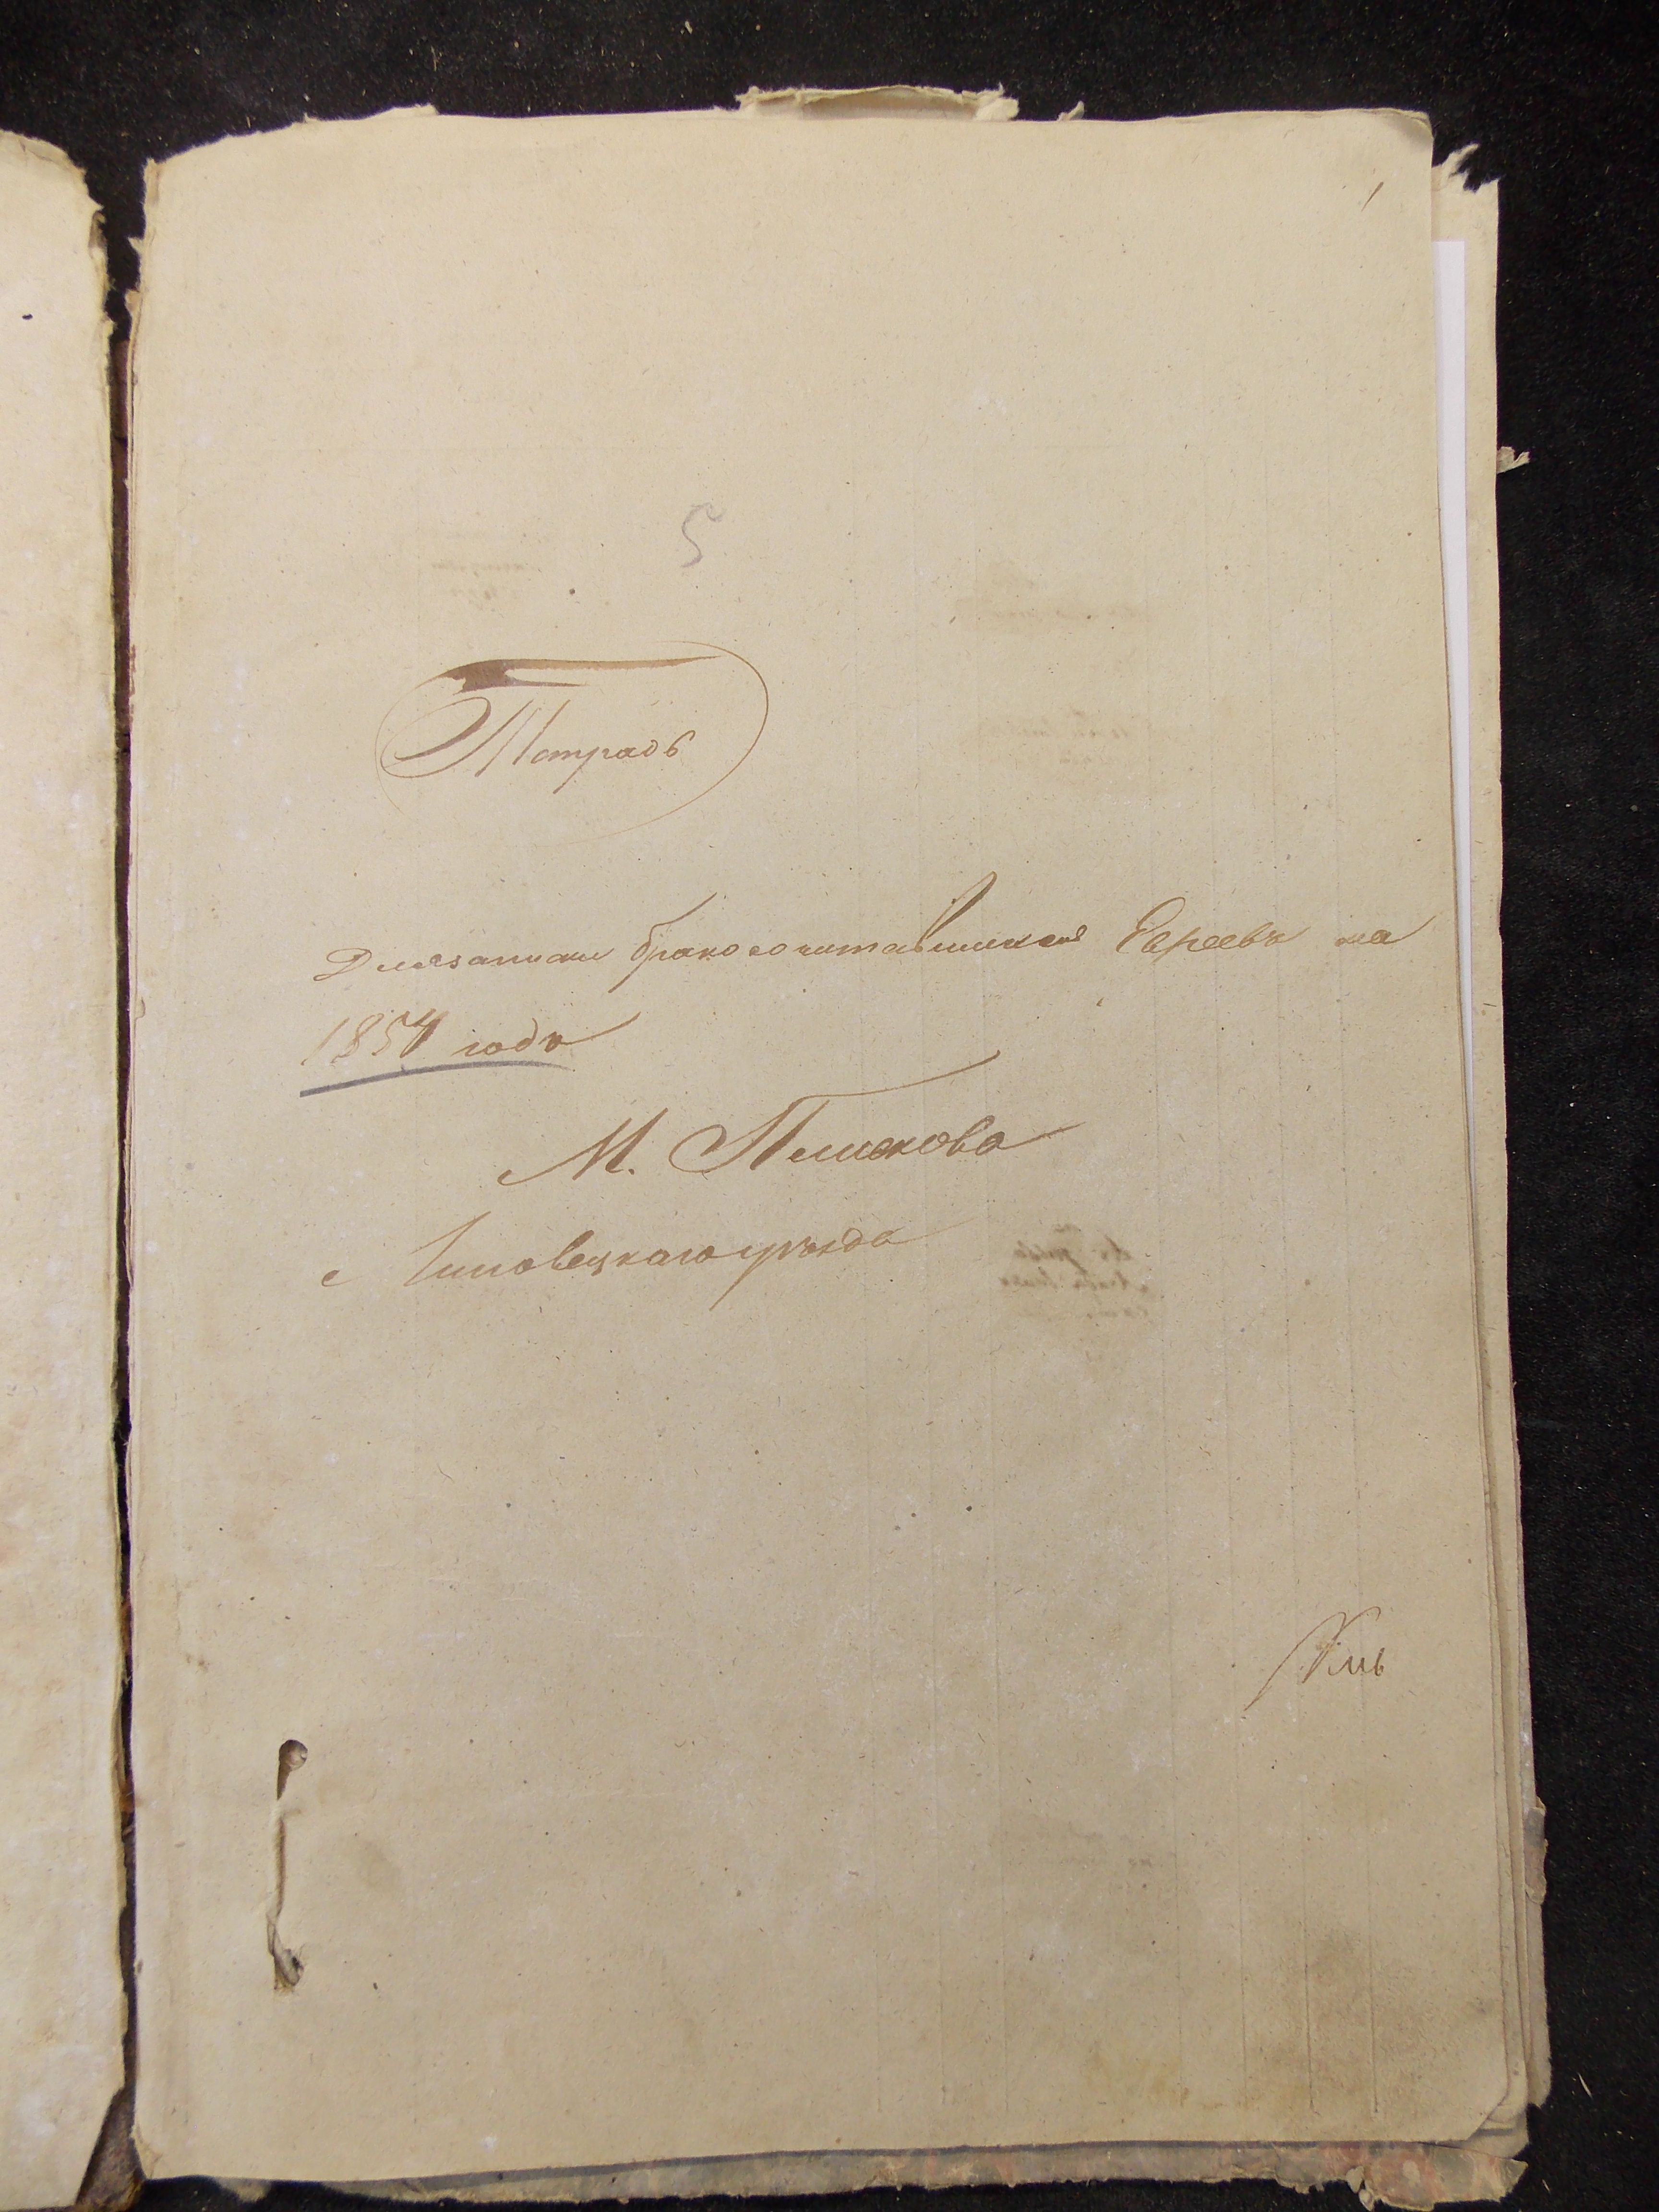 1
5
Тетрадь
Для записки бракосочитавшихся Евреевъ на
1854 годъ
М. Пликова
Липовецкаго уѣзда